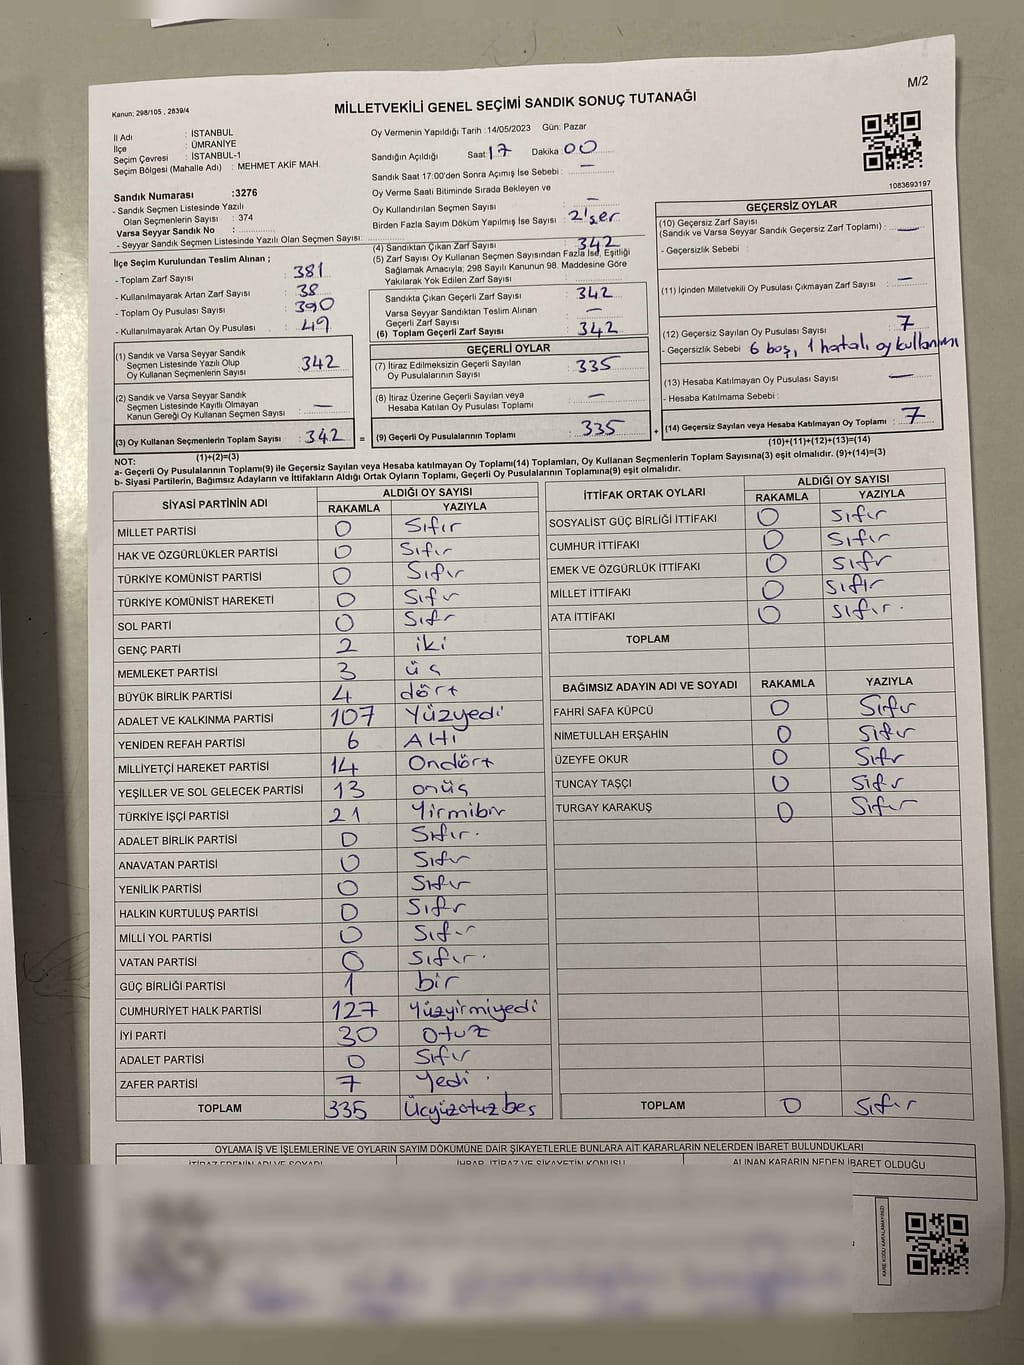 M/2
Kanun: 298/105 , 2839/4
MİLLETVEKİLİ GENEL SEÇİMİ SANDIK SONUÇ TUTANAĞI
İl Adı : İSTANBUL
İlçe : ÜMRANİYE
Seçim Çevresi : İSTANBUL-1
Seçim Bölgesi (Mahalle Adı) : MEHMET AKİF MAH.
Sandık Numarası :3276
- Sandık Seçmen Listesinde Yazılı
Olan Seçmenlerin Sayısı : 374
Varsa Seyyar Sandık No :
- Seyyar Sandık Seçmen Listesinde Yazılı Olan Seçmen Sayısı:
İlçe Seçim Kurulundan Teslim Alınan ;
- Toplam Zarf Sayısı : 381
- Kullanılmayarak Artan Zarf Sayısı : 38
- Toplam Oy Pusulası Sayısı : 390
- Kullanılmayarak Artan Oy Pusulası : 49
(1) Sandık ve Varsa Seyyar Sandık
Seçmen Listesinde Yazılı Olup
Oy Kullanan Seçmenlerin Sayısı : 342
(2) Sandık ve Varsa Seyyar Sandık
Seçmen Listesinde Kayıtlı Olmayan
Kanun Gereği Oy Kullanan Seçmen Sayısı : —
(3) Oy Kullanan Seçmenlerin Toplam Sayısı : 342 =
(1)+(2)=(3)
Oy Vermenin Yapıldığı Tarih :14/05/2023 Gün: Pazar
Sandığın Açıldığı Saat: 17 Dakika: 00
Sandık Saat 17:00'den Sonra Açımış İse Sebebi : —
Oy Verme Saati Bitiminde Sırada Bekleyen ve
Oy Kullandırılan Seçmen Sayısı : —
Birden Fazla Sayım Döküm Yapılmış İse Sayısı : 2'şer
(4) Sandıktan Çıkan Zarf Sayısı : 342
(5) Zarf Sayısı Oy Kullanan Seçmen Sayısından Fazla İse, Eşitliği
Sağlamak Amacıyla; 298 Sayılı Kanunun 98. Maddesine Göre
Yakılarak Yok Edilen Zarf Sayısı :
Sandıkta Çıkan Geçerli Zarf Sayısı : 342
Varsa Seyyar Sandıktan Teslim Alınan
Geçerli Zarf Sayısı : —
(6) Toplam Geçerli Zarf Sayısı : 342
GEÇERLİ OYLAR
(7) İtiraz Edilmeksizin Geçerli Sayılan
Oy Pusulalarının Sayısı : 335
(8) İtiraz Üzerine Geçerli Sayılan veya
Hesaba Katılan Oy Pusulası Toplamı : —
(9) Geçerli Oy Pusulalarının Toplamı : 335 +
1083693197
GEÇERSİZ OYLAR
(10) Geçersiz Zarf Sayısı
(Sandık ve Varsa Seyyar Sandık Geçersiz Zarf Toplamı) : —
- Geçersizlik Sebebi :
(11) İçinden Milletvekili Oy Pusulası Çıkmayan Zarf Sayısı : —
(12) Geçersiz Sayılan Oy Pusulası Sayısı : 7
- Geçersizlik Sebebi 6 boş, 1 hatalı oy kullanımı
(13) Hesaba Katılmayan Oy Pusulası Sayısı : —
- Hesaba Katılmama Sebebi :
(14) Geçersiz Sayılan veya Hesaba Katılmayan Oy Toplamı : 7
(10)+(11)+(12)+(13)=(14)
NOT:
a- Geçerli Oy Pusulalarının Toplamı(9) ile Geçersiz Sayılan veya Hesaba katılmayan Oy Toplamı(14) Toplamları, Oy Kullanan Seçmenlerin Toplam Sayısına(3) eşit olmalıdır. (9)+(14)=(3)
b- Siyasi Partilerin, Bağımsız Adayların ve İttifakların Aldığı Ortak Oyların Toplamı, Geçerli Oy Pusulalarının Toplamına(9) eşit olmalıdır.
SİYASİ PARTİNİN ADI ALDIĞI OY SAYISI
RAKAMLA YAZIYLA
MİLLET PARTİSİ 0 Sıfır
HAK VE ÖZGÜRLÜKLER PARTİSİ 0 Sıfır
TÜRKİYE KOMÜNİST PARTİSİ 0 Sıfır
TÜRKİYE KOMÜNİST HAREKETİ 0 Sıfır
SOL PARTİ 0 Sıfır
GENÇ PARTİ 2 iki
MEMLEKET PARTİSİ 3 üç
BÜYÜK BİRLİK PARTİSİ 4 dört
ADALET VE KALKINMA PARTİSİ 107 Yüzyedi
YENİDEN REFAH PARTİSİ 6 Altı
MİLLİYETÇİ HAREKET PARTİSİ 14 Ondört
YEŞİLLER VE SOL GELECEK PARTİSİ 13 onüç
TÜRKİYE İŞÇİ PARTİSİ 21 Yirmibir
ADALET BİRLİK PARTİSİ 0 Sıfır.
ANAVATAN PARTİSİ 0 Sıfır
YENİLİK PARTİSİ 0 Sıfır
HALKIN KURTULUŞ PARTİSİ 0 Sıfır
MİLLİ YOL PARTİSİ 0 Sıfır
VATAN PARTİSİ 0 Sıfır.
GÜÇ BİRLİĞİ PARTİSİ 1 bir
CUMHURİYET HALK PARTİSİ 127 Yüzyirmiyedi
İYİ PARTİ 30 Otuz
ADALET PARTİSİ 0 Sıfır
ZAFER PARTİSİ 7 Yedi.
TOPLAM 335 Üçyüzotuzbeş
İTTİFAK ORTAK OYLARI ALDIĞI OY SAYISI
RAKAMLA YAZIYLA
SOSYALİST GÜÇ BİRLİĞİ İTTİFAKI 0 Sıfır
CUMHUR İTTİFAKI 0 Sıfır
EMEK VE ÖZGÜRLÜK İTTİFAKI 0 Sıfır
MİLLET İTTİFAKI 0 Sıfır
ATA İTTİFAKI 0 Sıfır.
TOPLAM
BAĞIMSIZ ADAYIN ADI VE SOYADI RAKAMLA YAZIYLA
FAHRİ SAFA KÜPCÜ 0 Sıfır
NİMETULLAH ERŞAHİN 0 Sıfır
ÜZEYFE OKUR 0 Sıfır
TUNCAY TAŞÇI 0 Sıfır
TURGAY KARAKUŞ 0 Sıfır
TOPLAM 0 Sıfır
OYLAMA İŞ VE İŞLEMLERİNE VE OYLARIN SAYIM DÖKÜMÜNE DAİR ŞİKAYETLERLE BUNLARA AİT KARARLARIN NELERDEN İBARET BULUNDUKLARI
İTİRAZ EDENİN ADI VE SOYADI İHBAR, İTİRAZ VE ŞİKAYETİN KONUSU ALINAN KARARIN NEDEN İBARET OLDUĞU
KARE KODU KARALAMAYINIZ!